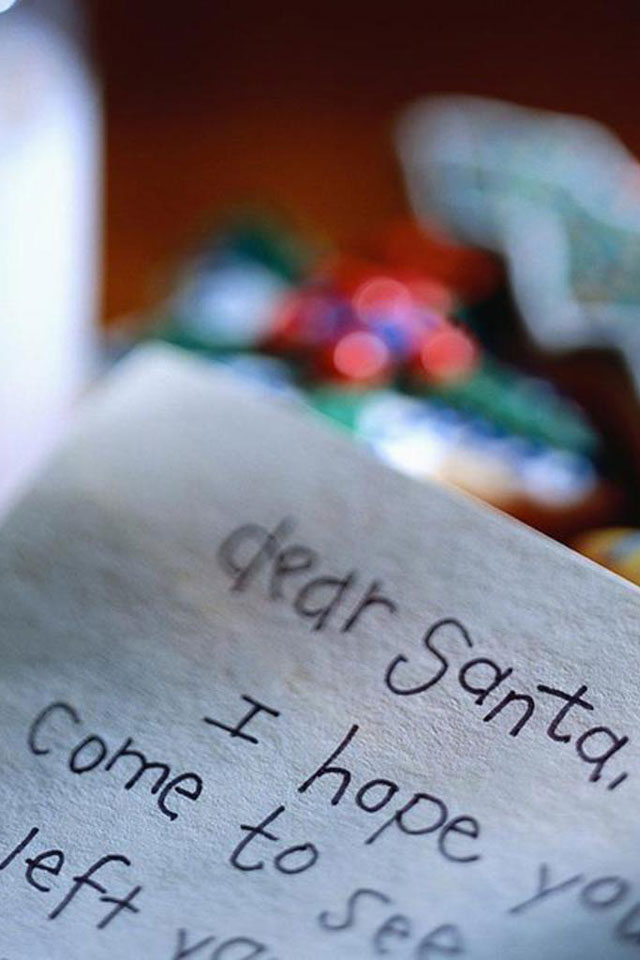 dear Santa,
I hope you
come to see
left